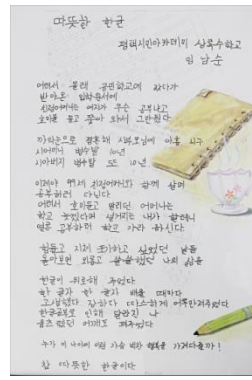 따뜻한 한글
평택시민아카데미 삼육수학교
임남순
어려서 몰래 공민학교에 갔다가
받아온 입학통지서에
친정아버지는 여자가 무슨 공부냐고
호미를 들고 쫓아 와서 그만뒀다
까막눈으로 결혼해 시부모님에 아홉 식구
시어머니 병수발 10년
시아버지 병수발 또 10년
이제야 99세 친정어머니와 함께 살며
공부하러 다닌다
어려서 호미들고 말리던 어머니는
학교 늦겠다며 설거지는 내가 할테니
얼른 공부하러 학교 가라 하신다
힘들고 지쳐 포기하고 싶었던 날들
돌아보면 외롭고 쓸쓸했던 나의 삶을
한글이 위로해 주었다
한 글자 한 글자 배울 때마다
고생했다 장하다 따스하게 어루만져주었다
한글공부로 인해 달라진 나
움츠렸던 어깨도 펴주었다
누가 이 나이에 이런 가슴 벅찬 행복을 가져다줄까!
참 따뜻한 한글이다